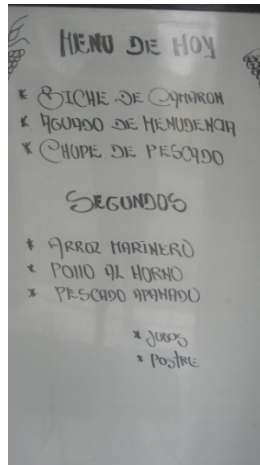 MENU DE HOY
* BICHE DE CAMARON
* AGUADO DE MENUDENCIA
* CHUPE DE PESCADO
SEGUNDOS
* ARROZ MARINERO
* POllO AL HORNO
* PESCADO APANADO
* JUGOS
* POSTRE